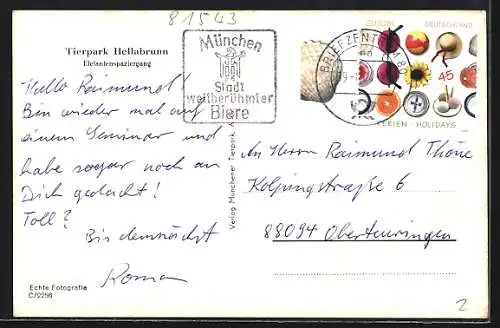 81543
Tierpark Hellabrunn
Elefantenspaziergang
München
Stadt
weltberühmter
Biere
BRIEFZENTRUM 80
EUROPA DEUTSCHLAND
45
FERIEN · HOLIDAYS
Hallo Raimund!
Bin wieder mal auf
einem Seminar und
habe sogar noch an
Dich gedacht!
Toll?
Bis demnächst
Roman
Verlag Münchener Tierpark
An Herrn Raimund Thöne
Kolpingstraße 6
88094 Oberteuringen
Echte Fotografie
C72256
2